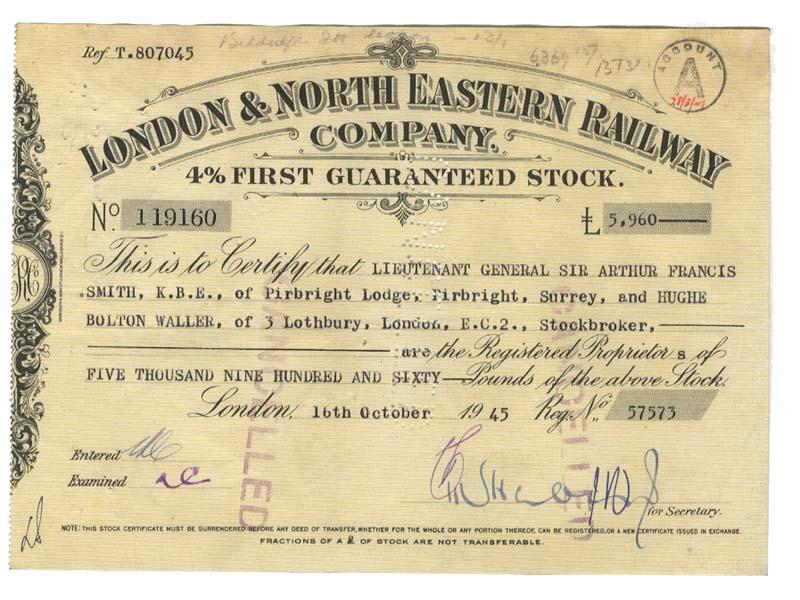 Ref. T.807045
6369 157/
ACCOUNT
A
LONDON & NORTH EASTERN RAILWAY
COMPANY.
4% FIRST GUARANTEED STOCK.
No 119160
£ 5,960
This is to Certify that LIEUTENANT GENERAL SIR ARTHUR FRANCIS
SMITH, K.B.E., of Pirbright Lodge, Pirbright, Surrey, and HUGHE
BOLTON WALLER, of 3 Lothbury, London, E.C.2., Stockbroker,
are the Registered Proprietors of
FIVE THOUSAND NINE HUNDRED AND SIXTY—Pounds of the above Stock.
London, 16th October 1945 Reg. No. 57573
CANCELLED
CANCELLED
Entered
Examined
for Secretary.
NOTE: THIS STOCK CERTIFICATE MUST BE SURRENDERED BEFORE ANY DEED OF TRANSFER, WHETHER FOR THE WHOLE OR ANY PORTION THEREOF, CAN BE REGISTERED, OR A NEW CERTIFICATE ISSUED IN EXCHANGE.
FRACTIONS OF A £ OF STOCK ARE NOT TRANSFERABLE.